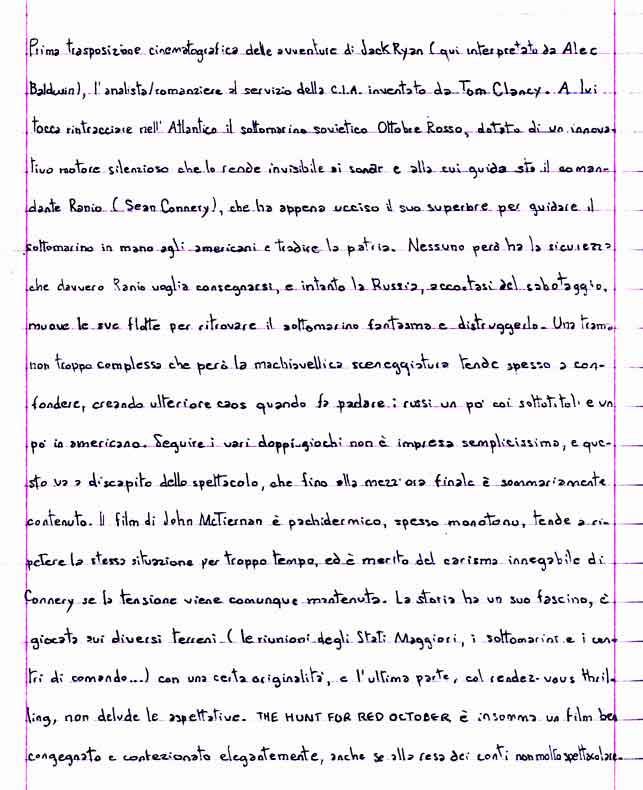 Prima trasposizione cinematografica delle avventure di Jack Ryan (qui interpretato da Alec
Baldwin), l'analista/romanziere al servizio della C.I.A. inventato da Tom Clancy. A lui
tocca rintracciare nell'Atlantico il sottomarino sovietico Ottobre Rosso, dotato di un innova-
tivo motore silenzioso che lo rende invisibile ai sonar e alla cui guida sta il coman-
dante Ranio (Sean Connery), che ha appena ucciso il suo superiore per guidare il
sottomarino in mano agli americani e tradire la patria. Nessuno però ha la sicurezza
che davvero Ranio voglia consegnarsi, e intanto la Russia, accortasi del sabotaggio,
muove le sue flotte per ritrovare il sottomarino fantasma e distruggerlo. Una trama
non troppo complessa che però la machiavellica sceneggiatura tende spesso a con-
fondere, creando ulteriore caos quando fa parlare i russi un po' coi sottotitoli e un
po' in americano. Seguire i vari doppi-giochi non è impresa semplicissima, e que-
sto va a discapito dello spettacolo, che fino alla mezz'ora finale è sommariamente
contenuto. Il film di John McTiernan è pachidermico, spesso monotono, tende a ri-
petere la stessa situazione per troppo tempo, ed è merito del carisma innegabile di
Connery se la tensione viene comunque mantenuta. La storia ha un suo fascino, è
giocata sui diversi terreni (le riunioni degli Stati Maggiori, i sottomarini e i cen-
tri di comando...) con una certa originalità, e l'ultima parte, col rendez-vous thril-
ling, non delude le aspettative. THE HUNT FOR RED OCTOBER è insomma un film ben
congegnato e confezionato elegantemente, anche se alla resa dei conti non molto spettacolare.